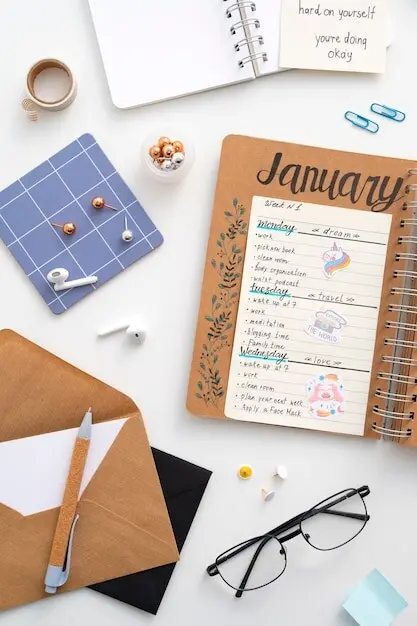 hard on yourself
you're doing
okay
January
Week N1
Monday
dream
• work
• pick new book
• clean room
• body organisation
podcast
Tuesday
travel
• wake up at 7
• work
• meditation
• blogging time
• Family time
THE WORLD
Wednesday
love
• wake up at 7
• work
• clean room
• plan your next week
• Apply a Face Mack